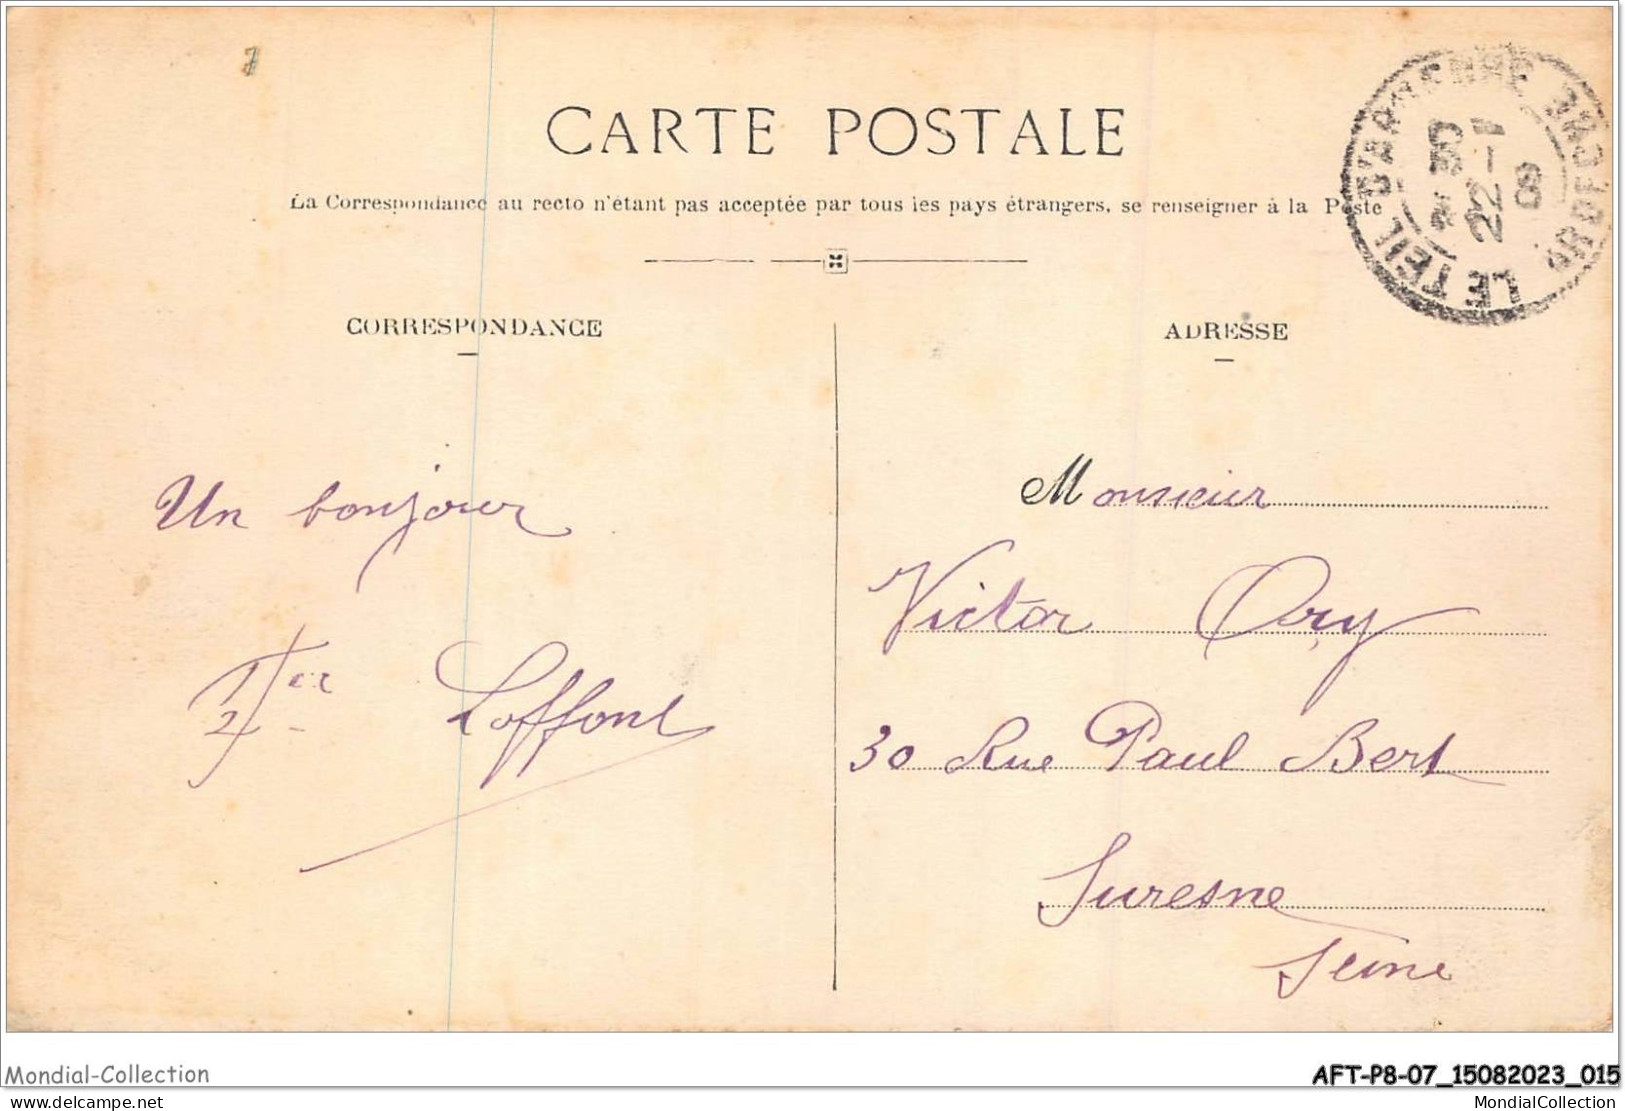 CARTE POSTALE
La Correspondance au recto n'étant pas acceptée par tous les pays étrangers, se renseigner à la Poste
CORRESPONDANCE
ADRESSE
LE TEIL D'ARDECHE ARDECHE
22 - 1
09
Un bonjour
Loffont
Monsieur
Victor Ory
30 Rue Paul Bert
Suresne
Seine
Mondial-Collection
AFT-P8-07_15082023_015
www.delcampe.net
MondialCollection